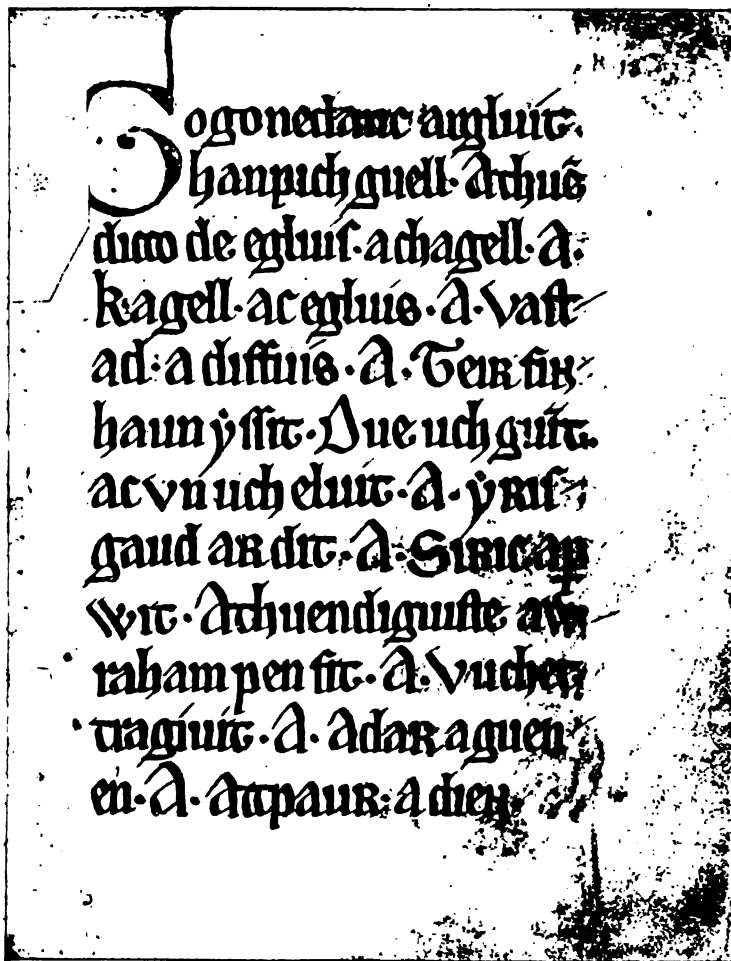 Gogonedauc argluit.
hanpich guell. Athuē
dicco de egluis. a chagell. A.
kagell. ac egluis. A. vast
ad. a diffuis. A. Teir fin
haun yssit. Due uch guīt.
ac vn uch eluit. A. yris
gaud ar dit. A. Siric aꝑ
wit. Athuendiguiste aw
raham pen fit. A. vuchet
tragiuit. A. Adar a guen
en. A. Attpaur. a dien.